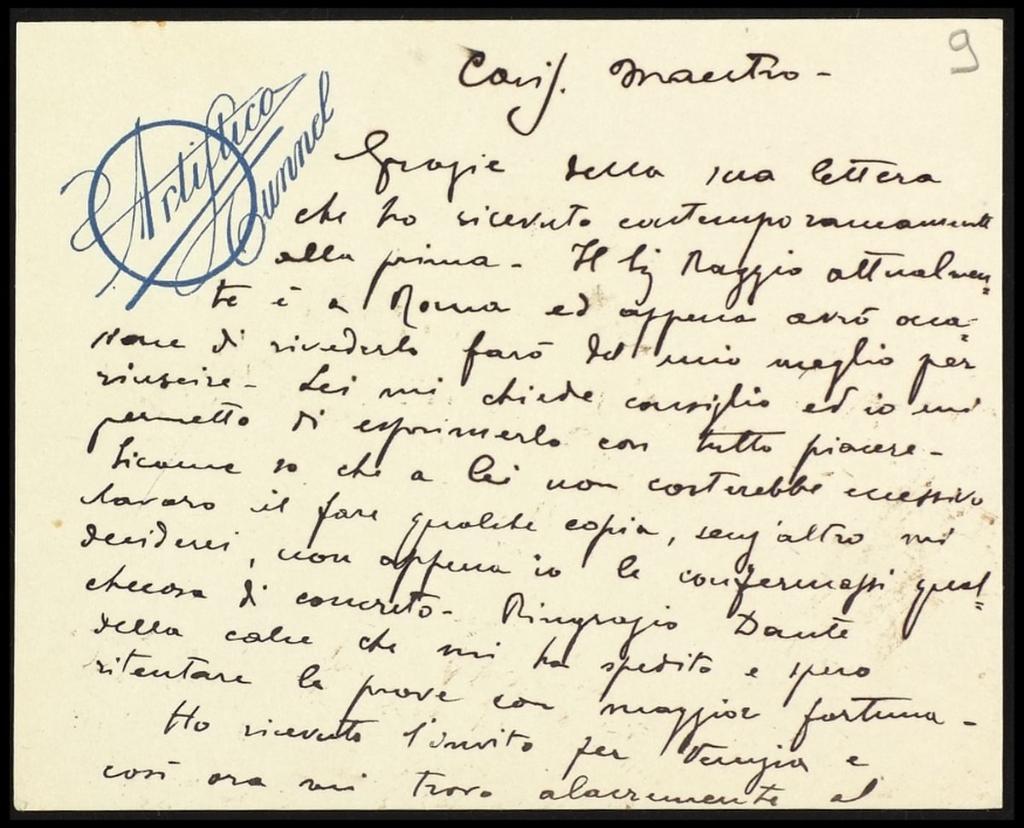 9
Cariss. Maestro -
Artistico
Tunnel
Grazie della sua lettera
che ho ricevuto contemporaneamente
alla prima - Il Sig Raggio attualmen=
te è a Roma ed appena avrò occa=
sione di rivederlo farò del mio meglio per
riuscire - Lei mi chiede consiglio ed io mi
permetto di esprimerlo con tutto piacere -
Siccome so che a lei non costerebbe eccessivo
lavoro il fare qualche copia, senz'altro mi
deciderei, non appena io le confermassi qual=
checosa di concreto - Ringrazio Dante
della calce che mi ha spedito e spero
ritentare le prove con maggior fortuna -
Ho ricevuto l'invito per Venezia e
così ora mi trovo alacremente al